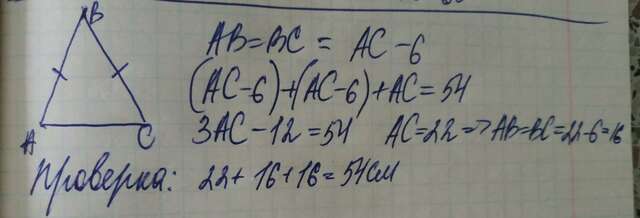 B
AB=BC = AC-6
(AC-6)+(AC-6)+AC=54
A C 3AC-12=54 AC=22=>AB=BC=22-6=16
Проверка: 22+16+16=54см